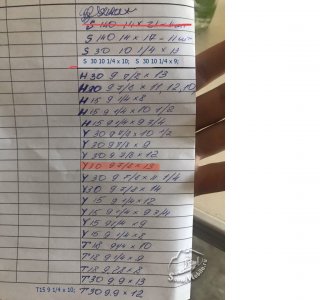 S 140 14 17 - 11 шт
S 30 10 1/4 x 13
S 30 10 1/4 x 10; S 30 10 1/4 x 9;
H 30 9 7/8 x 13
H 30 9 7/8 x 11, 12, 10
H 15 9 1/4 x 8
H 15 9 1/4 x 10 1/2
H 15 9 1/4 x 9 3/4
Y 30 9 7/8 x 10 1/2
Y 30 9 7/8 x 9
Y 30 9 7/8 x 12
Y 30 9 7/8 x 13
Y 30 9 7/8 x 11 1/4
Y 30 9 7/8 x 14
Y 15 9 1/4 x 12
Y 15 9 1/4 x 9 3/4
Y 15 9 1/4 x 9
Y 15 9 1/4 x 8
T 18 9 1/4 x 10
T 18 9 1/4 x 9
T 18 x 8
T 30 9.9 x 13
T15 9 1/4 x 10; T 30 9.9 x 12